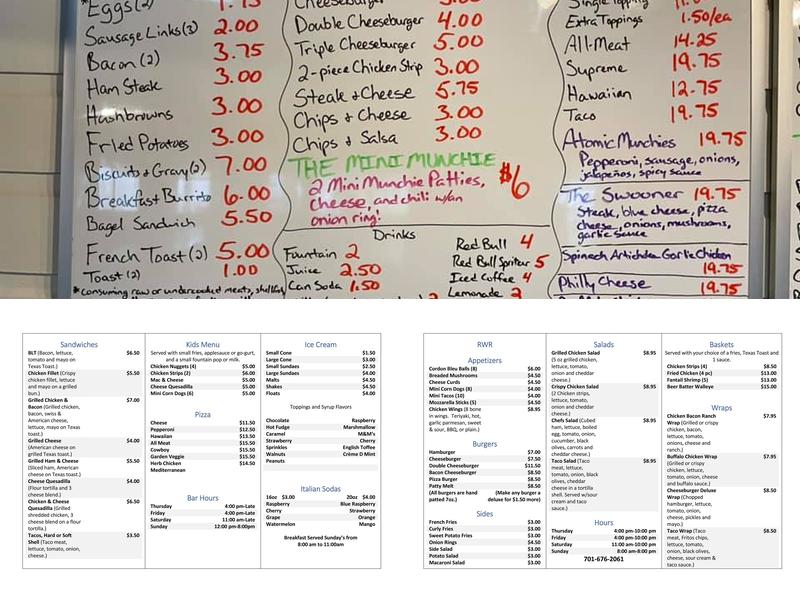 *Eggs (2)
Sausage Links (3) 2.00
Bacon (2) 3.75
Ham Steak 3.00
Hashbrowns 3.00
Fried Potatoes 3.00
Biscuits & Gravy (2) 7.00
Breakfast Burrito 6.00
Bagel Sandwich 5.50
French Toast (2) 5.00
Toast (2) 1.00
*consuming raw or undercooked meats, shellfish
Cheeseburger
Double Cheeseburger 4.00
Triple Cheeseburger 5.00
2-piece Chicken Strip 3.00
Steak & Cheese 5.75
Chips & Cheese 3.00
Chips & Salsa 3.00
THE MINI MUNCHIE $6
2 Mini Munchie Patties,
cheese, and chili w/an
onion ring!
Drinks
Fountain 2
Juice 2.50
Can Soda 1.50
Red Bull 4
Red Bull Spritzer 5
Iced Coffee 4
Lemonade
Single Topping
Extra Toppings 1.50/ea
All-Meat 14.25
Supreme 19.75
Hawaiian 12.75
Taco 19.75
Atomic Munchies 19.75
Pepperoni, sausage, onions,
jalapeños, spicy sauce
The Swooner 19.75
Steak, blue cheese, pizza
cheese, onions, mushrooms,
garlic sauce
Spinach Artichoke Garlic Chicken
19.75
Philly Cheese 19.75
Sandwiches
BLT (Bacon, lettuce, $6.50
tomato and mayo on
Texas Toast.)
Chicken Fillet (Crispy $5.50
chicken fillet, lettuce
and mayo on a grilled
bun.)
Grilled Chicken & $7.00
Bacon (Grilled chicken,
bacon, swiss &
American cheese,
lettuce, mayo on Texas
toast.)
Grilled Cheese $4.00
(American cheese on
grilled Texas Toast.)
Grilled Ham & Cheese $5.50
(Sliced ham, American
cheese on Texas Toast.)
Cheese Quesadilla $4.00
(Flour tortilla and 3
cheese blend.)
Chicken & Cheese $6.50
Quesadilla (Grilled
shredded chicken, 3
cheese blend on a flour
tortilla.)
Tacos, Hard or Soft $3.50
Shell (Taco meat,
lettuce, tomato, onion,
cheese.)
Kids Menu
Served with small fries, applesauce or go-gurt,
and a small fountain pop or milk.
Chicken Nuggets (4) $5.00
Chicken Strips (2) $6.00
Mac & Cheese $5.00
Cheese Quesadilla $5.00
Mini Corn Dogs (6) $5.00
Pizza
Cheese $11.50
Pepperoni $12.50
Hawaiian $13.50
All Meat $15.50
Cowboy $15.50
Garden Veggie $15.50
Herb Chicken $14.50
Mediterranean
Bar Hours
Thursday 4:00 pm-Late
Friday 4:00 pm-Late
Saturday 11:00 am-Late
Sunday 12:00 pm-8:00pm
Ice Cream
Small Cone $1.50
Large Cone $3.00
Small Sundaes $2.50
Large Sundaes $4.00
Malts $4.50
Shakes $4.50
Floats $4.00
Toppings and Syrup Flavors
Chocolate Raspberry
Hot Fudge Marshmallow
Caramel M&M's
Strawberry Cherry
Sprinkles English Toffee
Walnuts Crème D Mint
Peanuts
Italian Sodas
16oz $3.00 20oz $4.00
Raspberry Blue Raspberry
Cherry Strawberry
Grape Orange
Watermelon Mango
Breakfast Served Sunday's from
8:00 am to 11:00am
RWR
Appetizers
Cordon Bleu Balls (8) $6.00
Breaded Mushrooms $4.50
Cheese Curds $4.50
Mini Corn Dogs (8) $4.00
Mini Tacos (10) $4.00
Mozzarella Sticks (5) $4.50
Chicken Wings (8 bone $8.95
in wings. Teriyaki, hot,
garlic parmesan, sweet
& sour, BBQ, or plain.)
Burgers
Hamburger $7.00
Cheeseburger $7.50
Double Cheeseburger $11.50
Bacon Cheeseburger $8.50
Pizza Burger $8.50
Patty Melt $8.50
(All burgers are hand (Make any burger a
patted 7oz.) deluxe for $1.50 more)
Sides
French Fries $3.00
Curly Fries $3.00
Sweet Potato Fries $3.00
Onion Rings $4.50
Side Salad $3.00
Potato Salad $3.00
Macaroni Salad $3.00
Salads
Grilled Chicken Salad $8.95
(5 oz grilled chicken,
lettuce, tomato,
onion and cheddar
cheese.)
Crispy Chicken Salad $8.95
(2 Chicken strips,
lettuce, tomato,
onion and cheddar
cheese.)
Chefs Salad (Cubed $8.95
ham, lettuce, boiled
egg, tomato, onion,
cucumber, black
olives, carrots and
cheddar cheese.)
Taco Salad (Taco $8.95
meat, lettuce,
tomato, onion, black
olives, cheddar
cheese in a tortilla
shell. Served w/sour
cream and taco
sauce.)
Hours
Thursday 4:00 pm-10:00 pm
Friday 4:00 pm-10:00pm
Saturday 11:00 am-10:00pm
Sunday 8:00 am-8:00pm
701-676-2061
Baskets
Served with your choice of a fries, Texas Toast and
1 sauce.
Chicken Strips (4) $8.50
Fried Chicken (4 pc) $13.00
Fantail Shrimp (5) $13.00
Beer Batter Walleye $15.00
Wraps
Chicken Bacon Ranch $7.95
Wrap (Grilled or crispy
chicken, bacon,
lettuce, tomato,
onions, cheese and
ranch.)
Buffalo Chicken Wrap $7.95
(Grilled or crispy
chicken, lettuce,
tomato, onion, cheese
and buffalo sauce.)
Cheeseburger Deluxe $8.50
Wrap (Chopped
hamburger, lettuce,
tomato, onion,
cheese, pickles and
mayo.)
Taco Wrap (Taco $8.50
meat, Fritos chips,
lettuce, tomato,
onion, black olives,
cheese, sour cream &
taco sauce.)